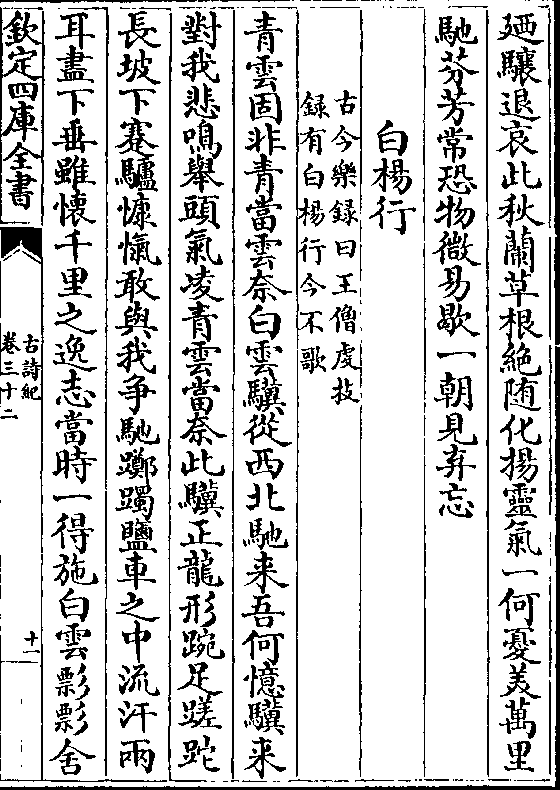 廼驤退哀此秋蘭草根絶随化揚靈氣一何憂美萬里
馳芬芳常恐物微易歇一朝見弃忘
白楊行
古今樂録曰王僧虔技
録有白楊行今不歌
青雲固非青當雲奈白雲驥從西北馳来吾何憶驥来
對我悲鳴舉頭氣凌青雲當奈此驥正龍形踠足蹉跎
長坡下蹇驢慷愾敢與我争馳躑躅鹽車之中流汗兩
耳盡下垂雖懐千里之逸志當時一得施白雲影影舍
欽定四庫全書
古詩紀
卷三十二
十一